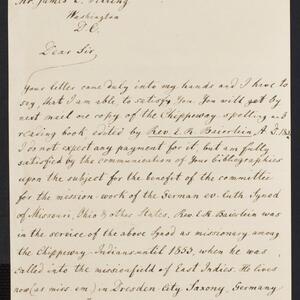 Mr. James C. Pilling
Washington
D. C.
Dear Sir,
Your letter came duly into my hands and I have to
say, that I am able to satisfy You. You will get by
next mail one copy of the Chippeway-spelling and
reading book edited by Rev. E. R. Baierlein, A. D. 1852
I do not expect any payment for it, but am fully
satisfied by the communication of Your bibliographies
upon the subject for the benefit of the committee
for the mission-work of the German ev. luth. Synod
of Missouri, Ohio & other States. Rev. E. R. Baierlein was
in the service of the above Synod as missionary among
the Chippeway-Indians until 1853, when he was
called into the missionfield of East Indies. He lives
now (as miss. em.) in Dresden City Saxony, Germany